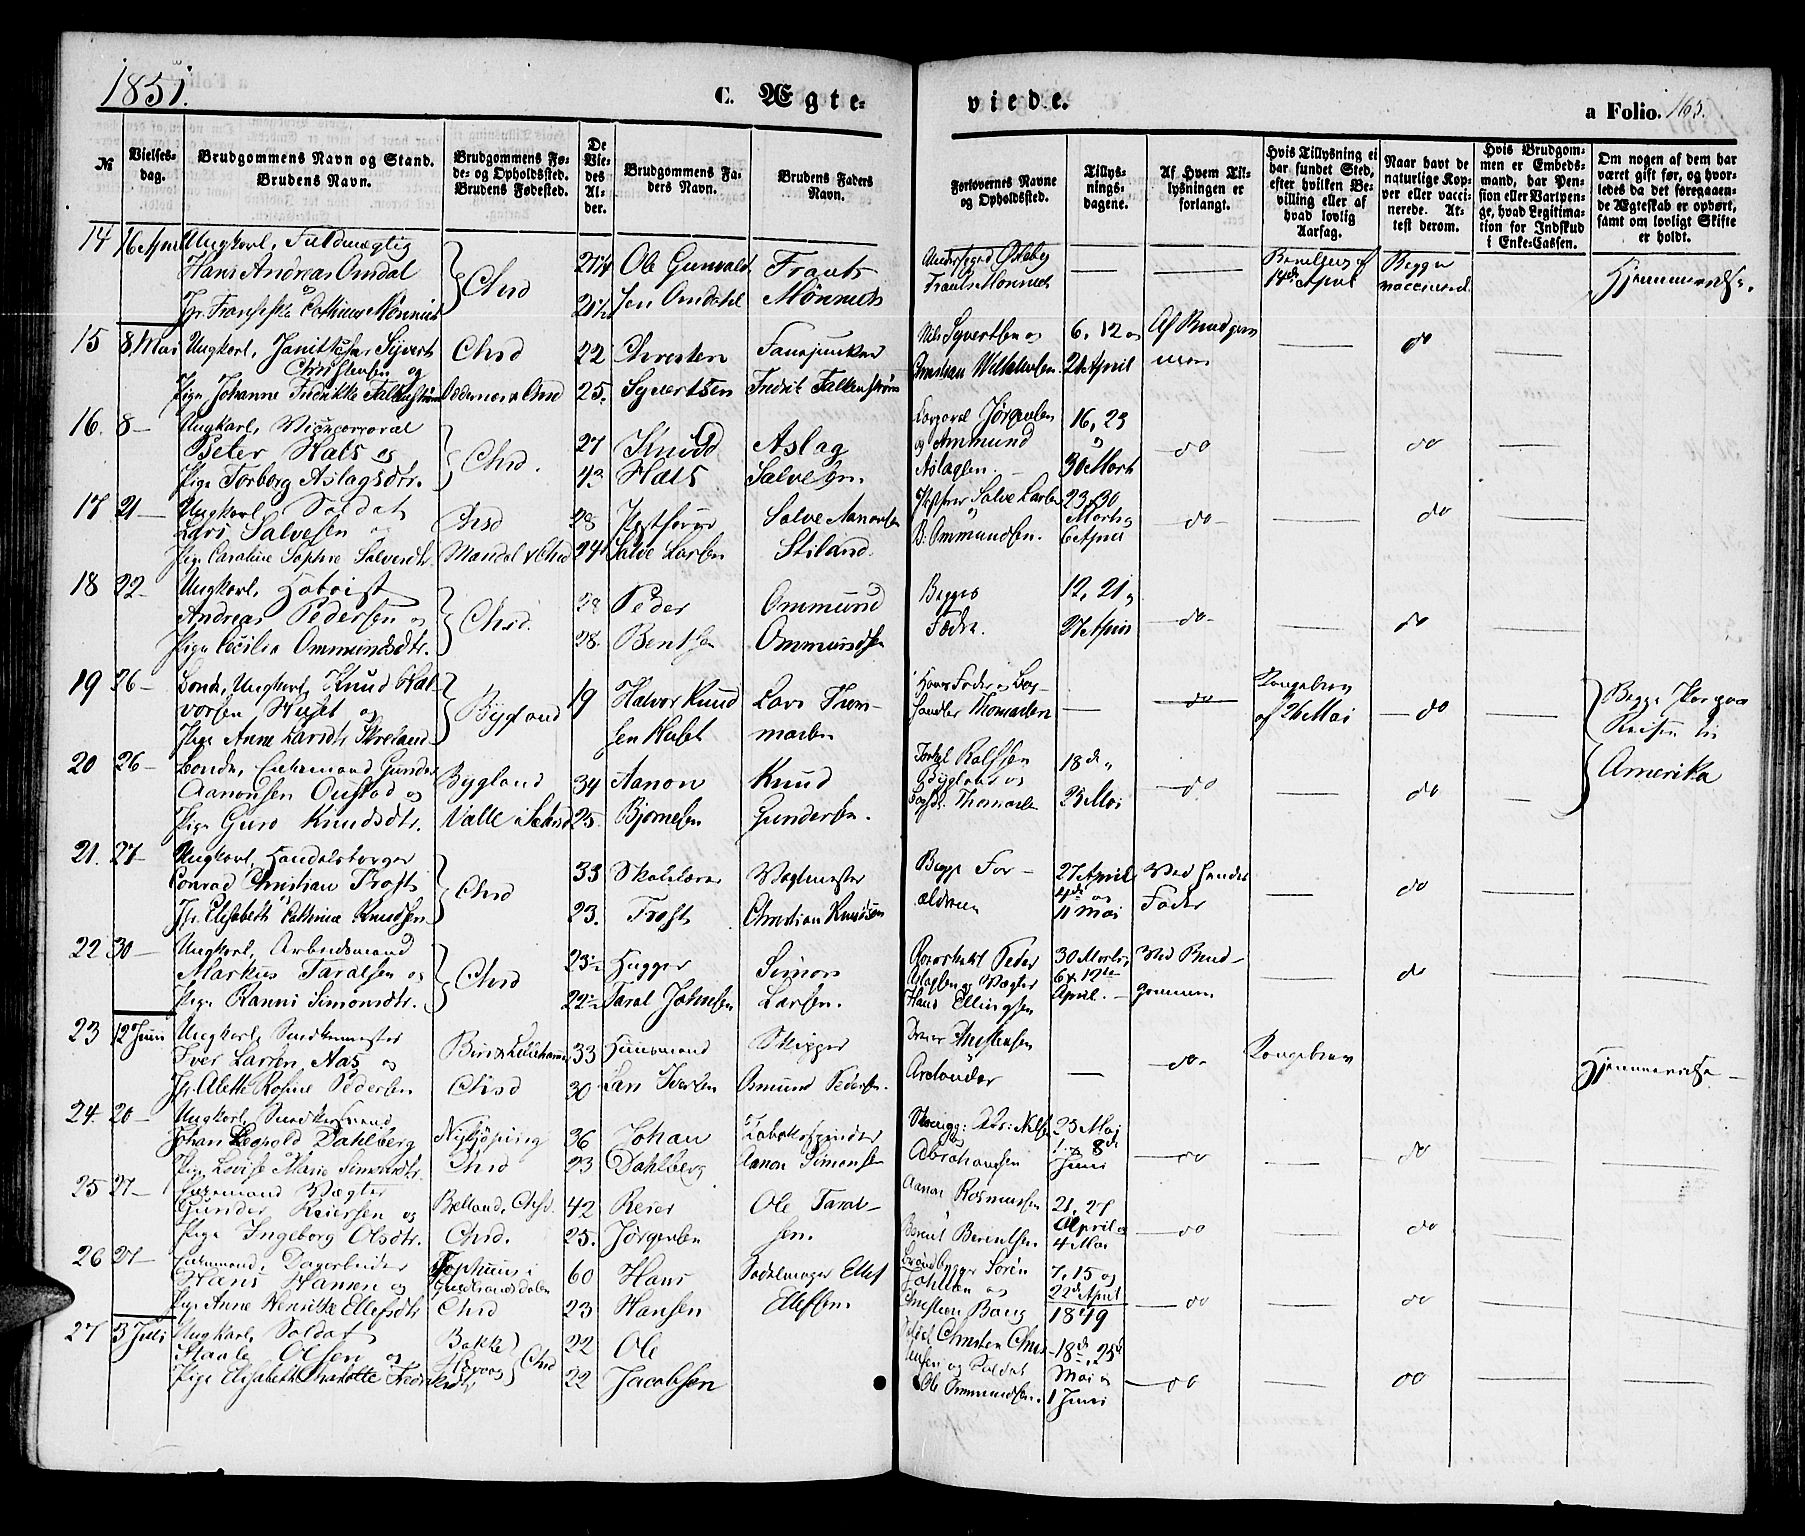 1851.
C. Ægteviede.
a Folio. 163.
№
Vielsesdag.
Brudgommens Navn og Stand.
Brudens Navn.
Brudgommens Føde- og Opholdsted.
Brudens Fødested.
De Viedes Alder.
Brudgommens Faders Navn.
Brudens Faders Navn.
Forlovernes Navne og Opholdsted.
Tillysningsdagene.
Af Hvem Tillysningen er forlangt.
Hvis Tillysning ei har fundet Sted, efter hvilken Bevilling eller af hvad lovlig Aarsag.
Naar havt de naturlige Kopper eller vaccinerede. Attest derom.
Hvis Brudgommen er Embedsmand, har Pension eller Vartpenge, hvad Legitimation for Indskud i Enke-Cassen.
Om nogen af dem har været gift før, og hvorledes da det foregaaende Ægteskab er ophørt, samt om lovligt Skifte er holdt.
14 16 April Ungkarl, Fuldmægtig
Hans Andreas Omdal
Jfr. Franciska Cathinca Mønnich
Chrsd
Ole Gunvald
Jen Omdahl
Frants
Mønnich
Frants Mønnich
14de April
Begge
vaccinered
Hjemmevielse.
15 8 Mai Ungkarl, Sijvert
Christensen og
Pige Johanne Fredrikke Falkenstrøm
Chrsd
22
25.
Christen
Syvertsen
Fredrik Falkenstrøm
Nils Syvertsen og
Christian Wilhelmsen
6, 12 og
21 April
Af Brudgommen
do
16. 8 — Ungkarl, Vicecorporal
Peter Hals og
Pige Torborg Aslagsdtr.
Chrsd.
27
42
Knud
Hals
Aslag
Salvesen.
Corporal Jørgensen
og Ammund
Aslagsen.
16, 23
30 Marts
do
do
17 21 — Ungkarl, Soldat
Lars Salvesen og
Pige Caroline Sophie Salvesdtr.
Chrsd
Mandal & Chrsd
28
24
Postfører
Salve Larsen
Salve Aanonsen
Stiland.
Postfører Salve Larsen
og
B. Ommundsen.
23, 30
Marts og
6 April
do
do
18 22 — Ungkarl, Hoboist
Andreas Pedersen og
Pige Cecilie Ommundsdtr.
Chrsd.
28
28.
Peder
Bentsen
Ommund
Ommundsen
Begges
Fædre.
12, 21 og
27 April
do
do
19 26 — Bonde, Ungkarl, Knud Halvorsen Huset og
Pige Anne Larsdtr. Skreland
Bygland
19
Halvor Knudsen Huset
Lars Thommasen
af 26 Mai
do
do
Begge Par paa
Reisen til
Amerika
20 26 — Bonde, Enkemand Gunder
Aanonsen Oustad og
Pige Guro Knudsdtr.
Bygland
Valle i Sæthsd
34
25
Aanon
Bjørnesen
Knud
Gundersen.
Bygland og
Thomasen
18de og
25 Mai
do
do
21. 27 — Ungkarl, Handelsborger
Conrad Christian Frost
Jfr. Elisabeth Cathrine Knudsen
Chrsd
33
23.
Skolelærer
Frost
Vagtmester
Christian Knudsen
Begge Forældrene
27 April
4de og
11 Mai
Ved hendes
Fader
do
22 30 — Ungkarl, Arbeidsmand
Markus Taralsen og
Pige Ranni Simonsdtr.
Chrsd
Hugger
Taral Johnsen
Simon
Larsen.
Peder
Aslagsen og Vægter
Hans Ellingsen
30 Marts,
6 & 12te
April.
Ved Brudgommen
do
23 12 Juni Ungkarl, Snedkermester
Iver Larsen Aas og
Jfr. Alette Rosine Pedersen
Biri & Lillehammer
Chrsd
33
30
Huusmand
Skipper
Osmund Pedersen
do
Kongebrev
Hjemmevielse
24. 20 — Ungkarl, Snedkersvend
Johan Leopold Dahlberg
Pige Lovise Marie Simonsdtr.
Nykjøping
Chrsd
36
23
Johan
Dahlberg
Tobaksspinder
Aanon Simonsen
Abrahamsen
25 Mai
1. & 8de
Juni
do
do
25 27 — Enkemand Vægter
Gunder Reiersen og
Pige Ingeborg Olsdtr.
Belland, Chrsd.
Chrsd.
42
25.
Reier
Jørgensen
Ole Taralsen
Aanon Rasmussen
Berent Berentsen
21, 27
April og
4 Mai
do
do
26 27 — Enkemand, Dagarbeider
Hans Hansen og
Pige Anne Henrikke Ellefsdtr.
Gudbrandsdalen
Chrsd
60
23
Hans
Hansen
Sadelmager Ellef
Ellefsen
Brøndbygger Søren
Johnsen og
Christen Bang
7, 15 og
22de April
1849
do
do
27 3 Juli Ungkarl, Soldat
Staale Olsen og
Pige Elisabeth Charlotte
Bakke
Høvaag
Chrsd
22
22
Ole
Jacobsen
Christen Christensen og Soldat
Ole Ommundsen.
18de, 25de
Mai og
1 Juni
do
do